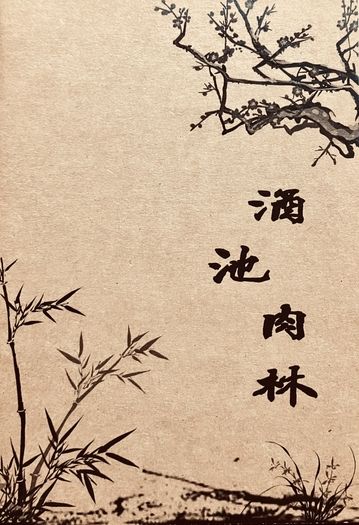 酒池肉林